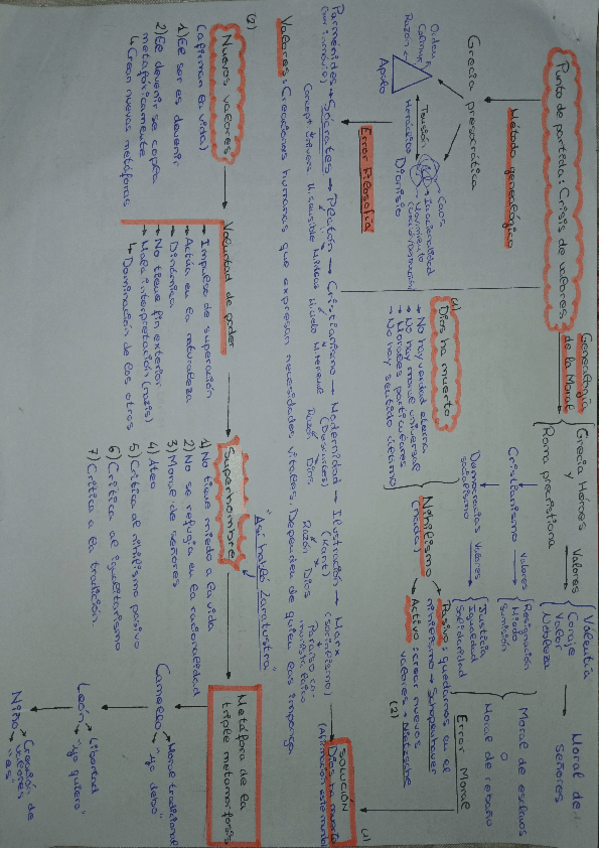 Punto de partida: Crisis de valores
Método genealógico
Grecia presocrática
Orden
Calma
Razón
Apolo
Tensión
Heráclito
Caos
Irracionalidad
Movimiento
Dionisio
Error Filosofía
Genealogía de la Moral
Grecia Héroes y Roma precristiana
Valores
Valentía
Coraje
Valor
Nobleza
Moral de señores
Cristianismo
Valores
Resignación
Miedo
Sumisión
Democracias
socialismo
Valores
Justicia
Igualdad
Solidaridad
Moral de esclavos
o
Moral de rebaño
Error Moral
(1)
Dios ha muerto
→ No hay verdad eterna
→ No hay moral universal
→ Morales particulares
→ No hay sentido último
Nihilismo
(nada)
Pasivo: quedarnos en el
nihilismo → Schopenhauer
Activo: crear nuevos
valores → Nietzsche
(2)
Parménides → Sócrates → Platón → Cristianismo → Modernidad → Ilustración → Marx
(ser inmóvil)
(Descartes)
(Kant)
(socialismo)
M. sensible
M. Ideas
M. Cielo
M. terrenal
Razón
Dios
Razón
Dios
Paraíso
SOLUCIÓN
Dios ha muerto
(1)
Valores: Creaciones humanas que expresan necesidades vitales. Dependen de quien las imponga
(2)
Nuevos valores
(afirman la vida)
1) El ser es devenir
2) El devenir se capta
metafóricamente
↳ Crean nuevas metáforas
Voluntad de poder
→ Impulso de superación
→ Actúa en la naturaleza
→ Dinámica
→ No tiene fin exterior
→ Mala interpretación (nazis)
↳ Dominación de los otros
"Así habló Zaratustra"
Superhombre
1) No tiene miedo a la vida
2) No se refugia en la racionalidad
3) Moral de señores
4) Ateo
5) Crítica al nihilismo pasivo
6) Crítica al igualitarismo
7) Crítica a la tradición
Metáfora de la
triple metamorfosis
Camello → Moral tradicional
"yo debo"
León → Libertad
"yo quiero"
Niño → Creación de
valores